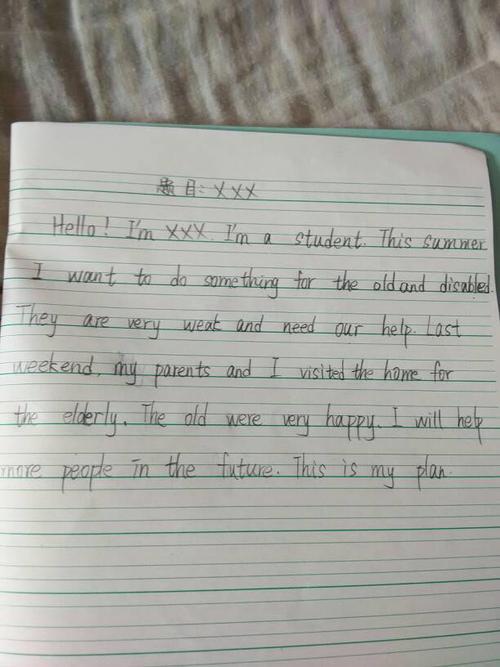 题目: XXX
Hello! I'm XXX. I'm a student. This summer
I want to do something for the old and disabled.
They are very weak and need our help. Last
weekend, my parents and I visited the home for
the elderly. The old were very happy. I will help
more people in the future. This is my plan.